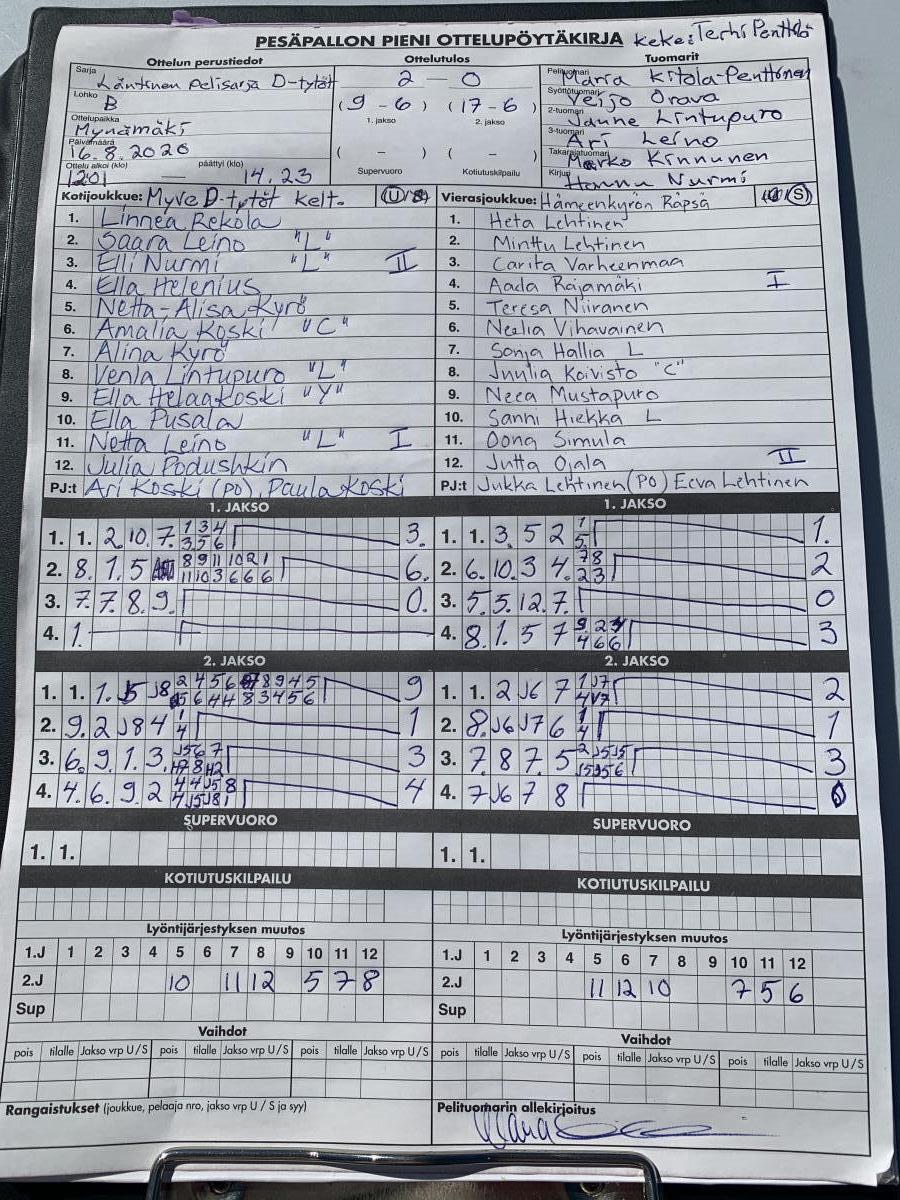 PESÄPALLON PIENI OTTELUPÖYTÄKIRJA keke: Terhi Penttilä
Ottelun perustiedot Ottelutulos Tuomarit
Sarja Läntinen pelisarja D-tytöt 2 – 0 Pelituomari Maria Kitola-Penttonen
Lohko B (9 – 6) (17 – 6) Syöttötuomari Veijo Orava
1. jakso 2. jakso
Ottelupaikka Mynämäki 2-tuomari Janne Lintupuro
Päivämäärä 16.8.2020 ( – ) ( – ) 3-tuomari Ari Leino
Supervuoro Kotiutuskilpailu Takarajatuomari Marko Kinnunen
Ottelu alkoi (klo) 1201 — päättyi (klo) 14.23 Kirjuri Hannu Nurmi
Kotijoukkue: MyVe D-tytöt kelt. U/S Vierasjoukkue: Hämeenkyrön Räpsä U/S
1. Linnea Rekola 1. Heta Lehtinen
2. Saara Leino "L" 2. Minttu Lehtinen
3. Elli Nurmi "L" II 3. Carita Varheenmaa
4. Ella Helenius 4. Aada Rajamäki I
5. Netta-Alisa Kyrö 5. Teresa Niiranen
6. Amalia Koski "C" 6. Neelia Vihavainen
7. Alina Kyrö 7. Sonja Hallia L
8. Venla Lintupuro "L" 8. Juulia Koivisto "C"
9. Ella Helaakoski "Y" 9. Neea Mustapuro
10. Ella Pusala 10. Sanni Hiekka L
11. Netta Leino "L" I 11. Oona Simula
12. Julia Podushkin 12. Jutta Ojala II
PJ:t Ari Koski (PO), Paula Koski PJ:t Jukka Lehtinen (PO) Eeva Lehtinen
1. JAKSO 1. JAKSO
1. 1. 2 10. 7. 1 3 4 3. 1. 1. 3. 5 2 1 1.
3 5 6 5.
2. 8. 1. 5 8 9 11 10 2 1 6. 2. 6. 10. 3 4. 7 8 2
11 10 3 6 6 6 2 3
3. 7. 7. 8. 9. 0. 3. 5. 5. 12. 7. 0
4. 1. 4. 8. 1. 5 7 9 2 3
4 6 6
2. JAKSO 2. JAKSO
1. 1. 1. 5 J8 2 4 5 6 8 9 4 5 9 1. 1. 2 J6 7 1 J7 2
5 6 4 4 8 3 4 5 6
2. 9. 2 J8 4 1 1 2. 8. J6 J7 6 1 1
4 4
3. 6. 9. 1. 3. J5 6 7 3 3. 7. 8 7. 5 2 J5 J5 3
4. 4. 6. 9. 2 4 4 J5 8 4 4. 7 J6 7 8 0
4 J5 J8 1
SUPERVUORO SUPERVUORO
1. 1. 1. 1.
KOTIUTUSKILPAILU KOTIUTUSKILPAILU
Lyöntijärjestyksen muutos Lyöntijärjestyksen muutos
1.J 1 2 3 4 5 6 7 8 9 10 11 12 1.J 1 2 3 4 5 6 7 8 9 10 11 12
2.J 10 11 12 5 7 8 2.J 11 12 10 7 5 6
Sup Sup
Vaihdot Vaihdot
pois tilalle Jakso vrp U/S pois tilalle Jakso vrp U/S pois tilalle Jakso vrp U/S pois tilalle Jakso vrp U/S pois tilalle Jakso vrp U/S pois tilalle Jakso vrp U/S
Rangaistukset (joukkue, pelaaja nro, jakso vrp U / S ja syy) Pelituomarin allekirjoitus